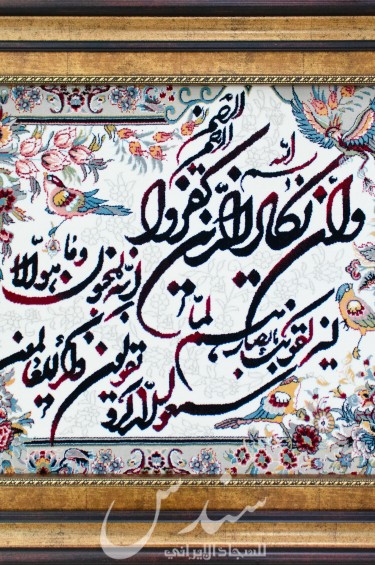 بسم الله الرحمن الرحيم
وان يكاد الذين كفروا
ليزلقونك بابصارهم لما
سمعوا الذكر و يقولون
انه لمجنون وما هو الا
ذكر للعالمين
سندس
للسجاد الايراني